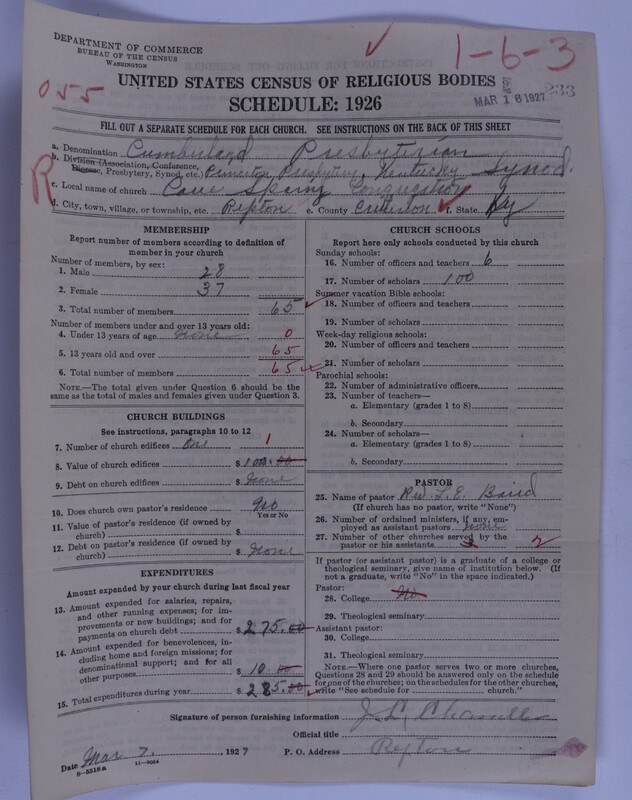 DEPARTMENT OF COMMERCE
BUREAU OF THE CENSUS
WASHINGTON
1-6-3
055
UNITED STATES CENSUS OF RELIGIOUS BODIES
MAR 16 1927
233
SCHEDULE: 1926
FILL OUT A SEPARATE SCHEDULE FOR EACH CHURCH. SEE INSTRUCTIONS ON THE BACK OF THIS SHEET
a. Denomination Cumberland Presbyterian
b. Division (Association, Conference, Diocese, Presbytery, Synod, etc.) Princeton Presbytery, Kentucky Synod.
R
c. Local name of church Cave Spring Congregation
d. City, town, village, or township, etc. Repton e. County Crittenton f. State Ky
MEMBERSHIP
Report number of members according to definition of member in your church
Number of members, by sex:
1. Male 28
2. Female 37
3. Total number of members 65
Number of members under and over 13 years old:
4. Under 13 years of age none 0
5. 13 years old and over 65
6. Total number of members 65
NOTE.—The total given under Question 6 should be the same as the total of males and females given under Question 3.
CHURCH BUILDINGS
See instructions, paragraphs 10 to 12
7. Number of church edifices One 1
8. Value of church edifices $
9. Debt on church edifices $ None
10. Does church own pastor's residence? No
Yes or No
11. Value of pastor's residence (if owned by church) $
12. Debt on pastor's residence (if owned by church) $ None
EXPENDITURES
Amount expended by your church during last fiscal year
13. Amount expended for salaries, repairs, and other running expenses; for improvements or new buildings; and for payments on church debt $ 275.00
14. Amount expended for benevolences, including home and foreign missions; for denominational support; and for all other purposes $ 10.00
15. Total expenditures during year $ 285.00
CHURCH SCHOOLS
Report here only schools conducted by this church
Sunday schools:
16. Number of officers and teachers 6
17. Number of scholars 100
Summer vacation Bible schools:
18. Number of officers and teachers
19. Number of scholars
Week-day religious schools:
20. Number of officers and teachers
21. Number of scholars
Parochial schools:
22. Number of administrative officers
23. Number of teachers—
a. Elementary (grades 1 to 8)
b. Secondary
24. Number of scholars—
a. Elementary (grades 1 to 8)
b. Secondary
PASTOR
25. Name of pastor Rev. L. E. Baird
(If church has no pastor, write "None")
26. Number of ordained ministers, if any, employed as assistant pastors None
27. Number of other churches served by the pastor or his assistants 2
If pastor (or assistant pastor) is a graduate of a college or theological seminary, give name of institution below. (If not a graduate, write "No" in the space indicated.)
Pastor:
28. College No
29. Theological seminary
Assistant pastor:
30. College
31. Theological seminary
NOTE.—Where one pastor serves two or more churches, Questions 28 and 29 should be answered only on the schedule for one of the churches; on the schedules for the other churches, write "See schedule for church."
Signature of person furnishing information
Official title
Date Mar 7, 1927 P. O. Address Repton
8-5518a 11-9064